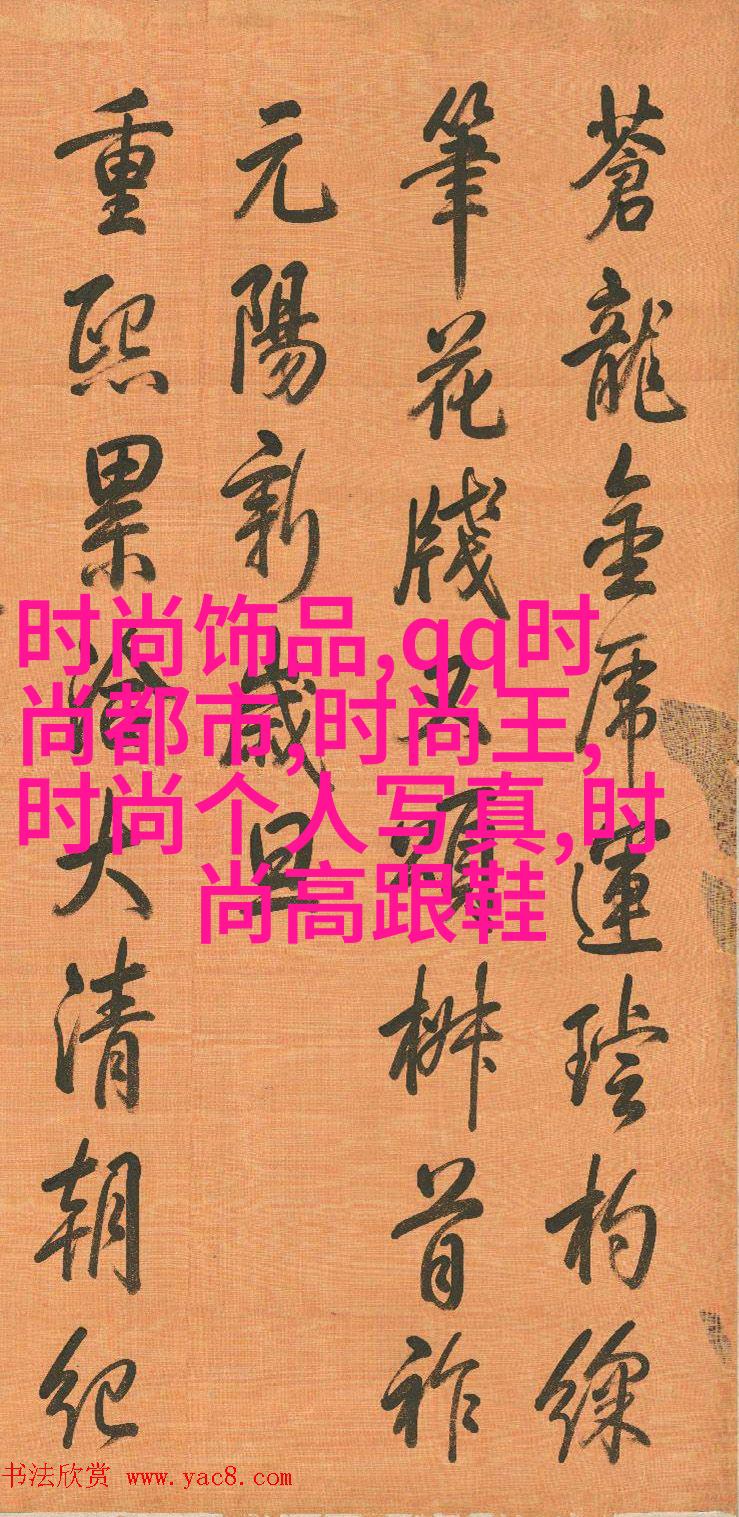 蒼龍金虎運璿杓
筆花牋首祚
元陽新歲旦
重熙累洽大清朝紀
时尚饰品,qq时
尚都市,时尚王,
时尚个人写真,时
尚高跟鞋
书法欣赏 www.yac8.com